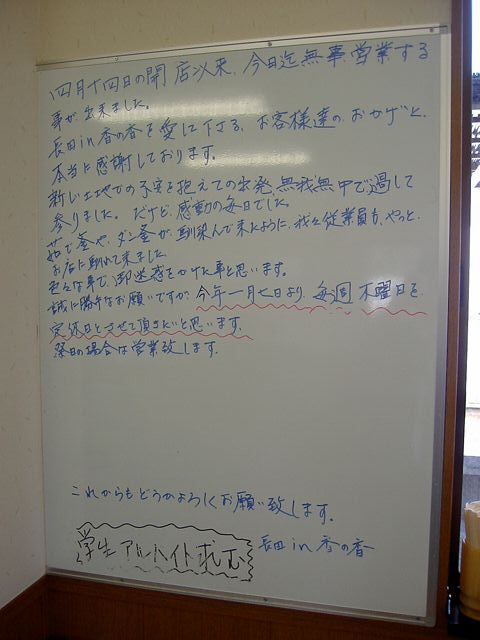 四月十四日の開店以来、今日迄無事営業する
事が出来ました。
長田in香の香を愛して下さる、お客様達のおかげと、
本当に感謝しております。
新しい土地での不安を抱えての出発、無我無中で過して
参りました。だけど、感動の毎日でした。
茹で釜や、ダシ釜が、馴染んで来たように、我々従業員も、やっと、
お店に馴れて来ました。
色々な事で、御迷惑をかけた事と思います。
誠に勝手なお願いですが、今年一月七日より、毎週木曜日を
定休日とさせて頂きたいと思います。
祭日の場合は営業致します。
これからもどうかよろしくお願い致します。
学生アルバイト求む
長田in香の香